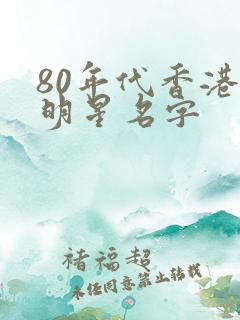 80年代香港
明星名字
褚福超
未经同意禁止转载